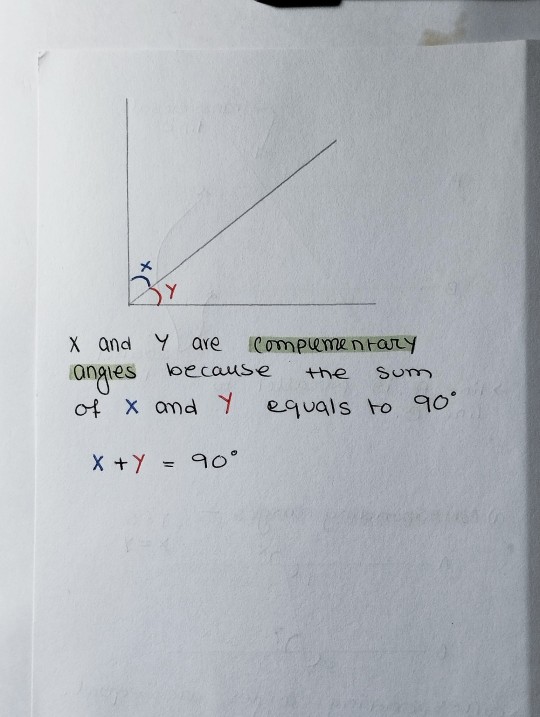 X
Y
X and Y are complementary
angles because the sum
of X and Y equals to 90°
X + Y = 90°